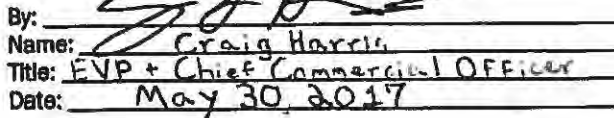 By:
Name: Craig Harris
Title: EVP + Chief Commercial OFFicer
Date: May 30, 2017